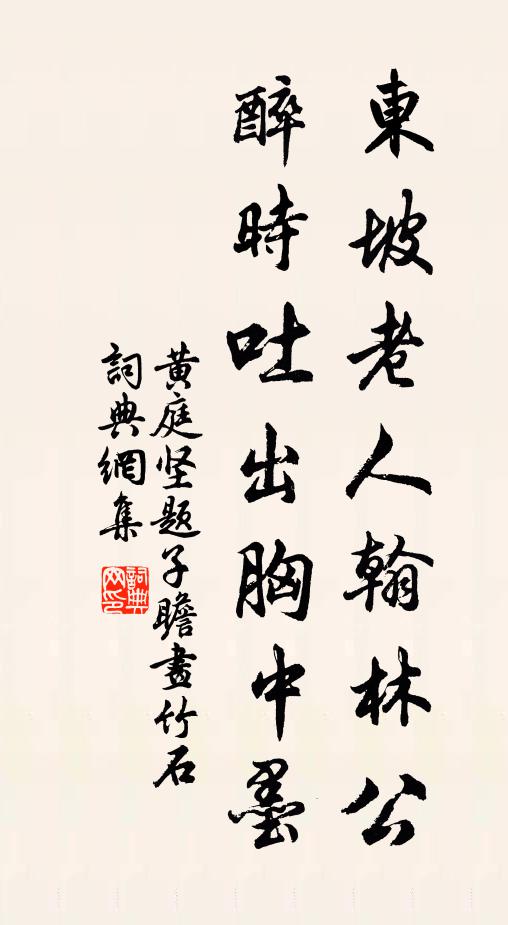 東坡老人翰林公
醉時吐出胸中墨
黄庭坚题子瞻畫竹石
詞典網集
詞典
网印